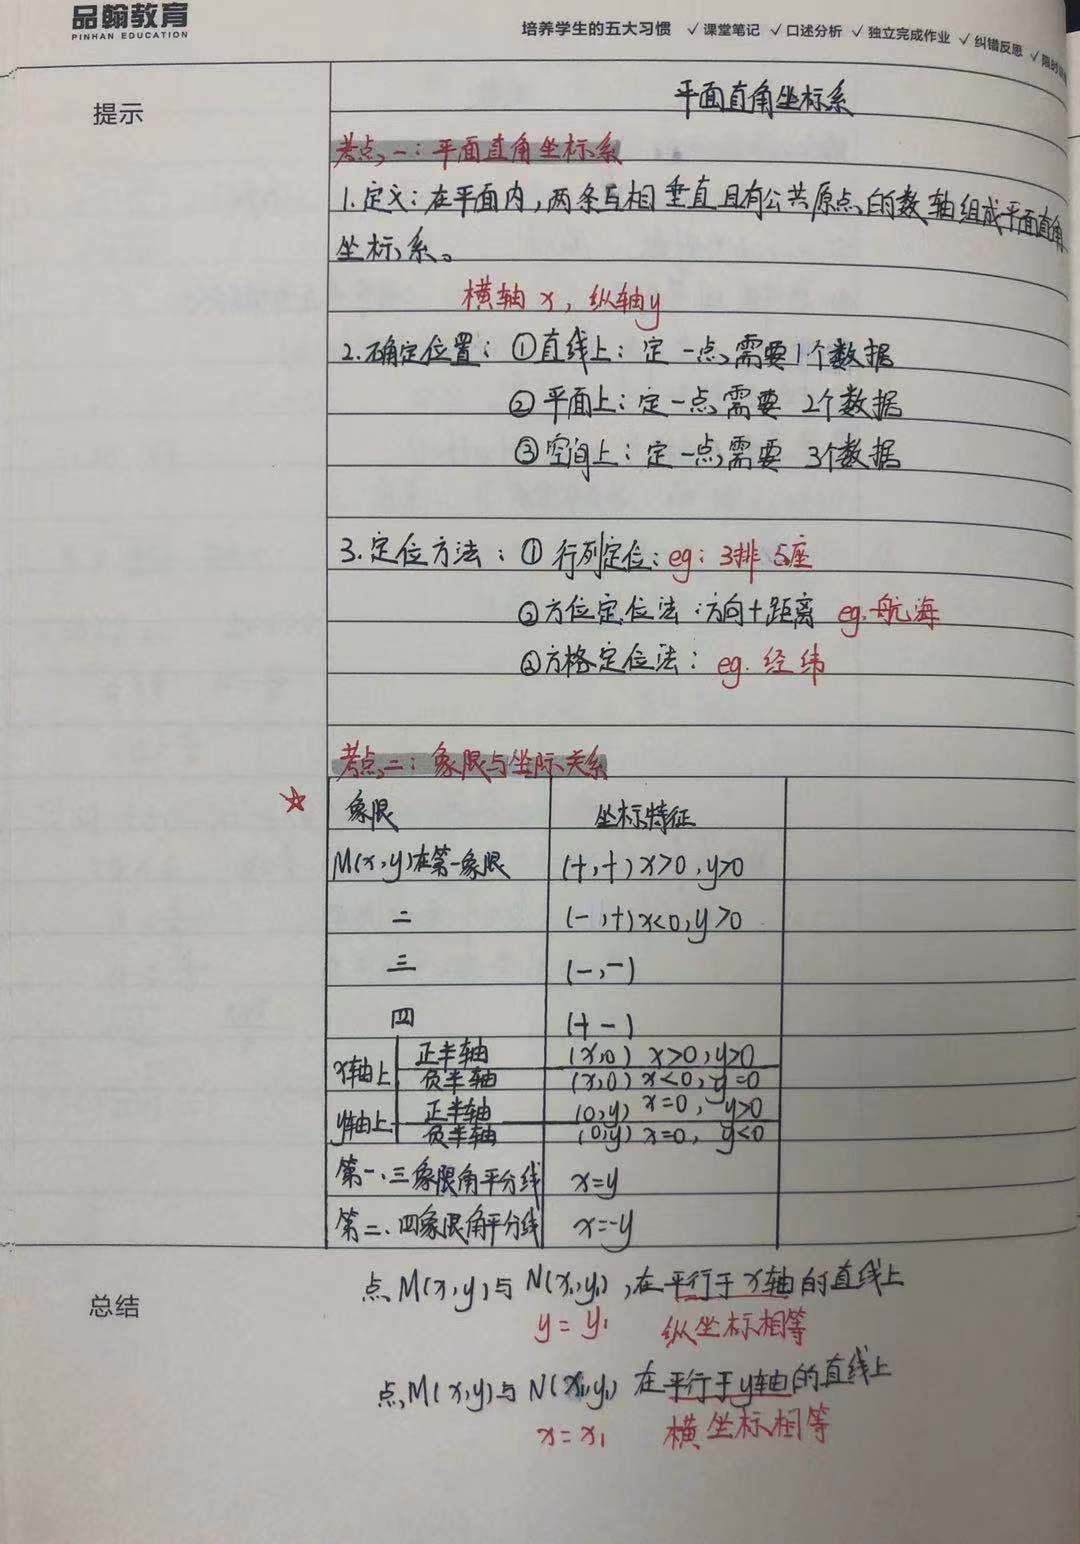 品翰教育
PINHAN EDUCATION
培养学生的五大习惯 √课堂笔记 √口述分析 √独立完成作业 √纠错反思 √限时
提示
平面直角坐标系
考点一：平面直角坐标系
1.定义：在平面内，两条互相垂直且有公共原点的数轴组成平面直角
坐标系。
横轴x，纵轴y
2.确定位置：①直线上：定一点需要1个数据
②平面上：定一点需要 2个数据
③空间上：定一点需要 3个数据
3.定位方法：① 行列定位：eg：3排5座
②方位定位法：方向+距离 eg.航海
③方格定位法：eg.经纬
考点二：象限与坐标关系
☆ 象限 坐标特征
M(x,y)在第一象限 (+,+) x>0,y>0
二 (-,+) x<0,y>0
三 (-,-)
四 (+ -)
x轴上 正半轴 (x,0) x>0,y>0
负半轴 (x,0) x<0,y=0
y轴上 正半轴 (0,y) x=0, y>0
负半轴 (0,y) x=0, y<0
第一、三象限角平分线 x=y
第二、四象限角平分线 x=-y
总结
点M(x,y)与N(x₁,y₁),在平行于x轴的直线上
y=y₁ 纵坐标相等
点M(x,y)与N(x₁,y₁) 在平行于y轴的直线上
x=x₁ 横坐标相等